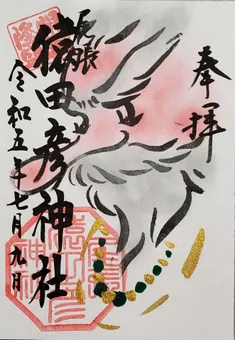 奉拝
尾張
猿田彦神社
令和五年七月九日